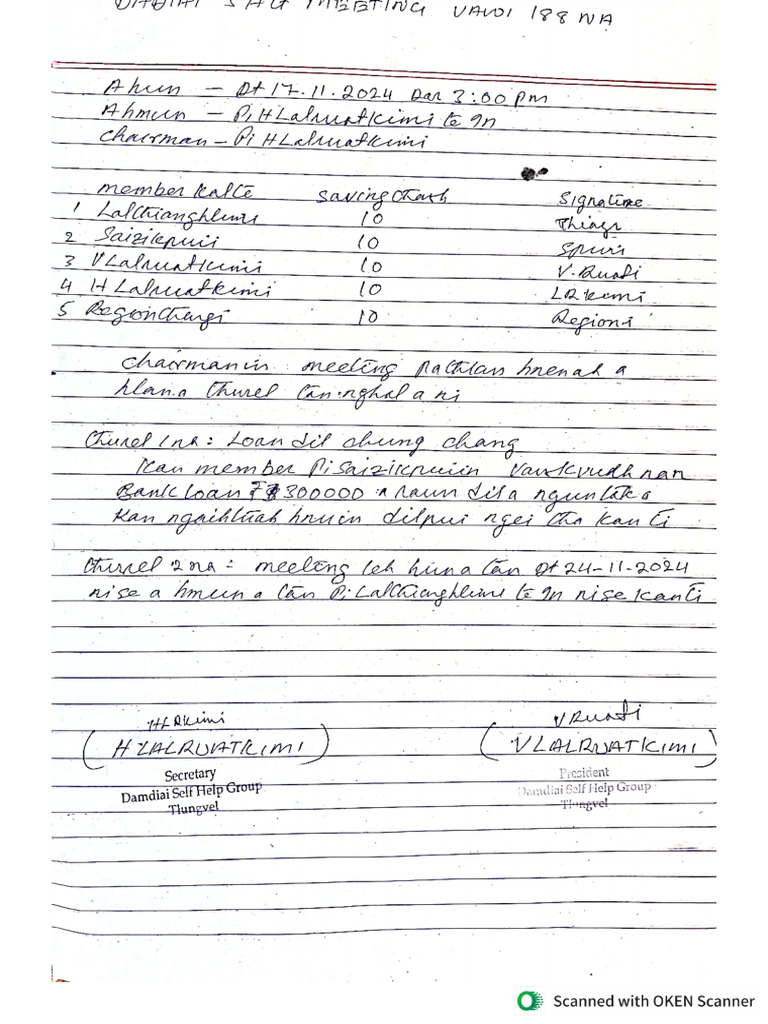 DAMDIAI SHG MEETING VAWI 188 NA
Ahun - Dt 17.11.2024 Dar 3:00 pm
Ahmun - Pi H Lalruatkimi te In
Chairman - Pi H Lalruatkimi
member kalte saving thawh Signature
1 Lalthianghlimi 10 Thiangi
2 Saizikpuii 10 Spuii
3 V Lalruatkimi 10 V. Ruati
4 H Lalruatkimi 10 LRkimi
5 Regionthangi 10 Regioni
chairmanin meeting pathlan hnenah a
hlan a thurel tan nghal a ni
thurel 1 na: Loan dil chung chang
kan member Pi Saizikpuiin
Bank loan 300000 a dil a ngun taka
kan ngaihtuah hnuin dilpui ngei tha kan ti
thurel 2 na: meeting leh hun a tan Dt 24-11-2024
nise a hmun a tan Pi Lalthianghlimi te In nise kan ti
HLRkimi V Ruati
(H LALRUATKIMI) (V LALRUATKIMI)
Secretary President
Damdiai Self Help Group Damdiai Self Help Group
Tlungvel Tlungvel
Scanned with OKEN Scanner